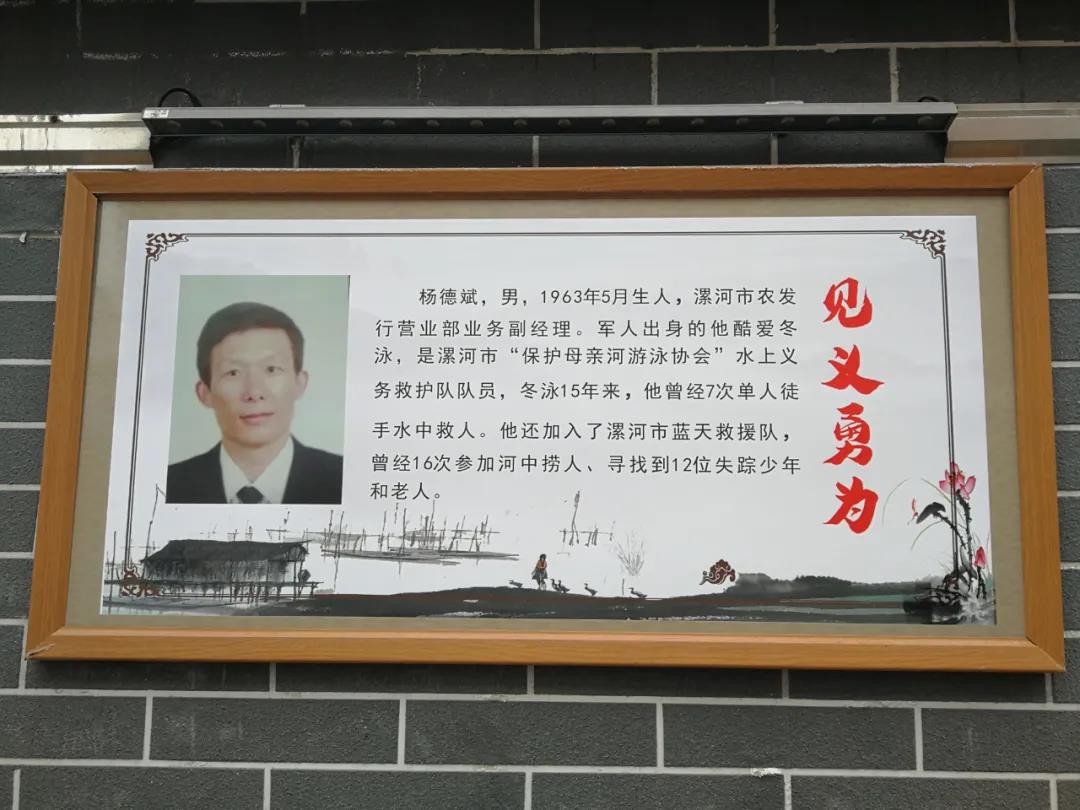 杨德斌，男，1963年5月生人，漯河市农发
行营业部业务副经理。军人出身的他酷爱冬
泳，是漯河市“保护母亲河游泳协会”水上义
务救护队队员，冬泳15年来，他曾经7次单人徒
手水中救人。他还加入了漯河市蓝天救援队，
曾经16次参加河中捞人、寻找到12位失踪少年
和老人。
见义勇为